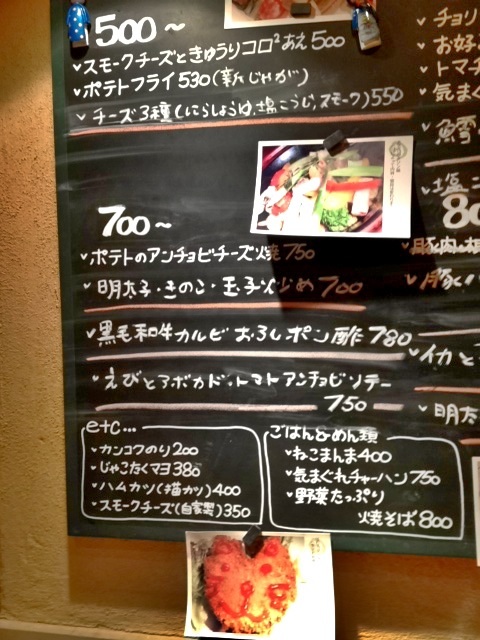 500～
・スモークチーズときゅうりコロ²あえ500
・ポテトフライ530(新じゃが)
・チーズ3種(にらしょうゆ,塩こうじ,スモーク)550
700～
・ポテトのアンチョビチーズ焼750
・明太子・きのこ・玉子炒め700
・黒毛和牛カルビおろしポン酢780
・えびとアボカド・トマトアンチョビソテー
750
etc...
・カンコワのり200
・じゃこたくマヨ380
・ハムカツ(描カツ)400
・スモークチーズ(自家製)350
ごはん&めん類
・ねこまんま400
・気まぐれチャーハン750
・野菜たっぷり
焼そば800
・チョリ
・お好
・トマチ
・気まぐ
・塩こ
80
・豚肉
・豚
・イカと
・明太